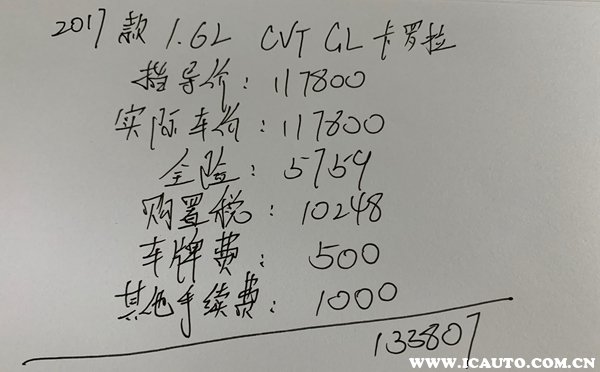 2017款 1.6L CVT GL 卡罗拉
指导价：117800
实际车价：117800
全险：5759
购置税：10248
车牌费：500
其他手续费：1000
133807
WWW.ICAUTO.COM.CN